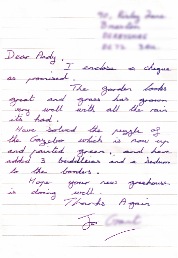 Dear Andy,
I enclose a cheque
as promised.
The garden looks
great and grass has grown
very well with all the rain
its had.
Have solved the puzzle of
the Gazebo which is now up
and painted green, and have
added 3 buddleias and a Sedum
to the borders.
Hope your new greenhouse
is doing well
Thanks Again
Jo